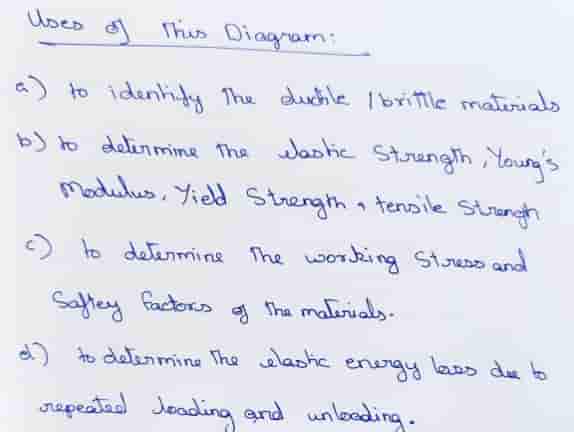 Uses of This Diagram:
a) to identify The ductile / brittle materials
b) to determine The elastic Strength, Young's
Modulus, Yield Strength & tensile Strength
c) to determine The working Stress and
Saftey factors of The materials.
d) to determine The elastic energy loss due to
repeated loading and unloading.